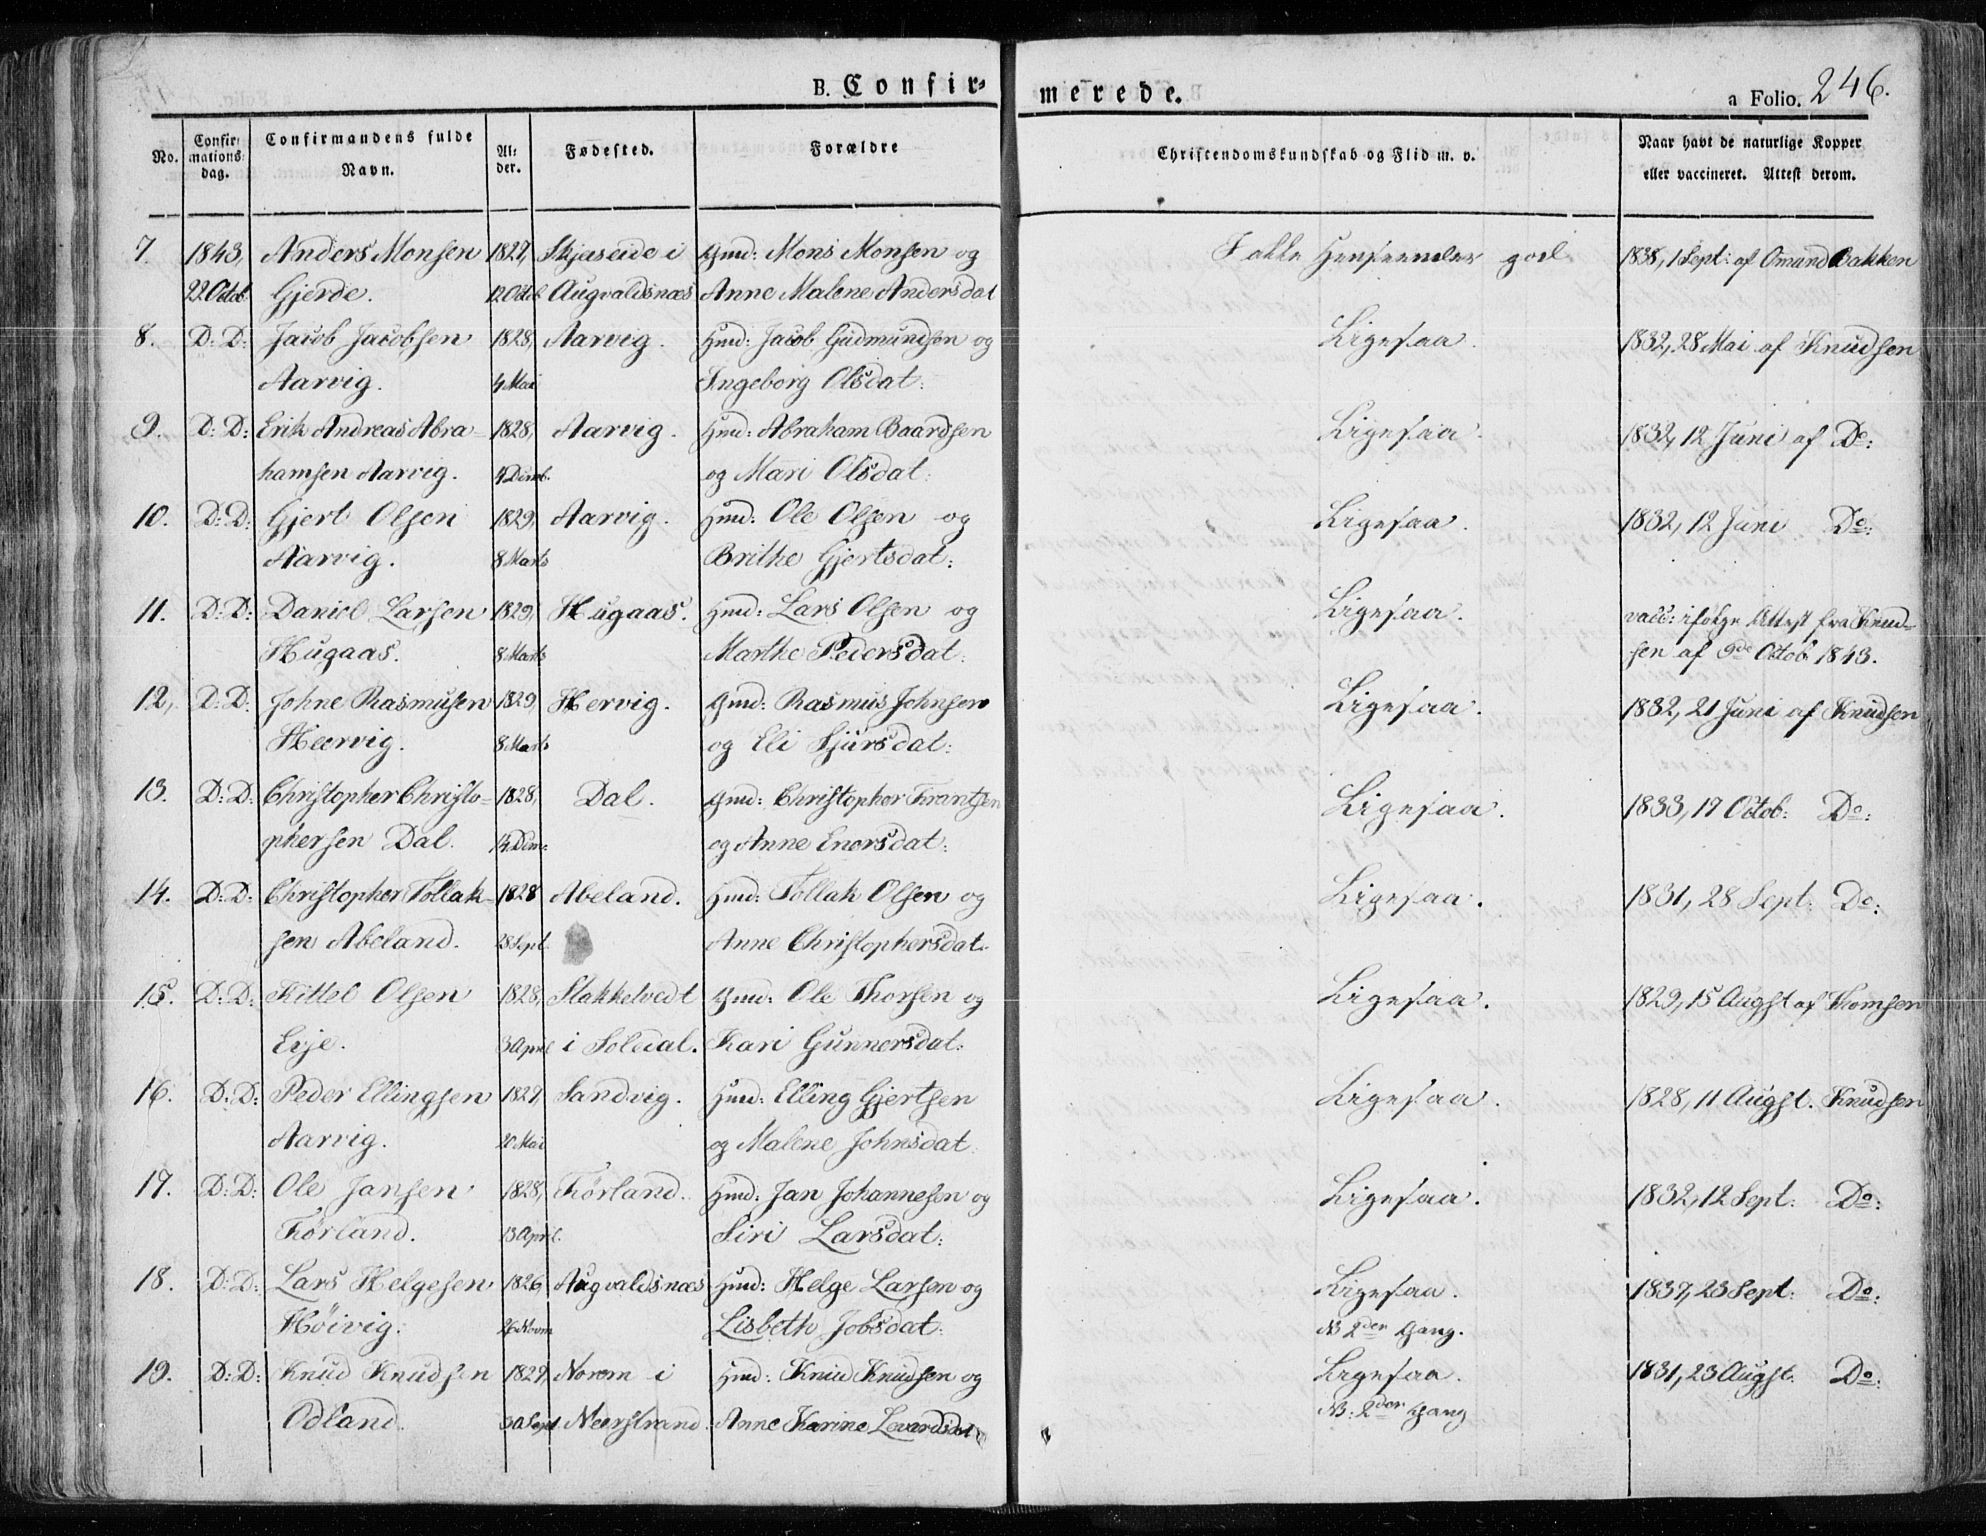 B. Confir-
merede.
a Folio. 246.
No. Confirmationsdag. Confirmandens fulde Navn. Alder. Fødested. Forældre Christendomskundskab og Flid m. v. Naar havt de naturlige Kopper eller vaccineret. Attest derom.
7. 1843, Anders Monsen 1827, Skjaseide i Gmd: Mons Monsen og I alle Henseender god 1838, 1 Sept: af Omund Bakken
22 Octob Gjerde. 12 Octob Augvaldsnæs Anne Malene Andersdat
8. D: D: Jacob Jacobsen 1828, Aarvig. Hmd: Jacob Gudmundsen og Ligesaa. 1832, 28 Mai af Knudsen
Aarvig. 4 Mai Ingeborg Olsdat:
9. D: D: Erik Andreas Abra- 1828, Aarvig. Hmd: Abraham Baardsen Ligesaa. 1832, 12 Juni af Do:
hamsen Aarvig. og Mari Olsdat:
10. D: D: Gjert Olsen 1829, Aarvig. Hmd: Ole Olsen og Ligesaa. 1832, 12 Juni Do:
Aarvig. 8 Marts Brithe Gjertsdat:
11. D: D: Daniel Larsen 1829, Hugaas. Hmd: Lars Olsen og Ligesaa. vacc: ifølge Attest fra Knud-
Hugaas. 8 Marts Marthe Pedersdat: sen af 9de Octob 1843.
12, D: D: Johne Rasmusen 1829, Hervig. Gmd: Rasmus Johnsen Ligesaa. 1832, 21 Juni af Knudsen
Heervig. 8 Marts og Eli Sjursdat:
13. D: D: Christopher Christo- 1828, Dal. Gmd: Christopher Frantsen Ligesaa. 1833, 17 Octob: Do:
phersen Dal. og Anne Enersdat:
14. D: D: Christopher Tollak- 1828 Abeland. Hmd: Tollak Olsen og Ligesaa. 1831, 28 Sept: Do:
sen Abeland. 28 Sept. Anne Christophersdat:
15. D: D: Kittel Olsen 1828, Slakketvedt Gmd: Ole Thorsen og Ligesaa. 1829, 15 Augst af Thomsen
Eije. 3 April i Soldal. Kari Gunnersdat:
16. D: D: Peder Ellingsen 1827, Sandvig. Hmd: Elling Gjertsen Ligesaa. 1828, 11 Augst. Knudsen
Aarvig. 20 Mai og Malene Johnsdat
17. D: D: Ole Jansen 1828, Førland. Hmd: Jan Johannesen og Ligesaa. 1832, 12 Sept: Do:
Førland. 13 April. Siri Larsdat:
18. D: D: Lars Helgesen 1826, Augvaldsnæs Hmd: Helge Larsen og Ligesaa. 1837, 23 Sept: Do:
Høivig. 26 Novm Lisbeth Jobsdat: N 2den Gang.
19. D: D: Knud Knudsen 1827, Norem i Hmd: Knud Knudsen og Ligesaa. 1831, 23 Augst. Do:
Odland. 30 Sept Neerstrand Anne Karine N: 2den Gang